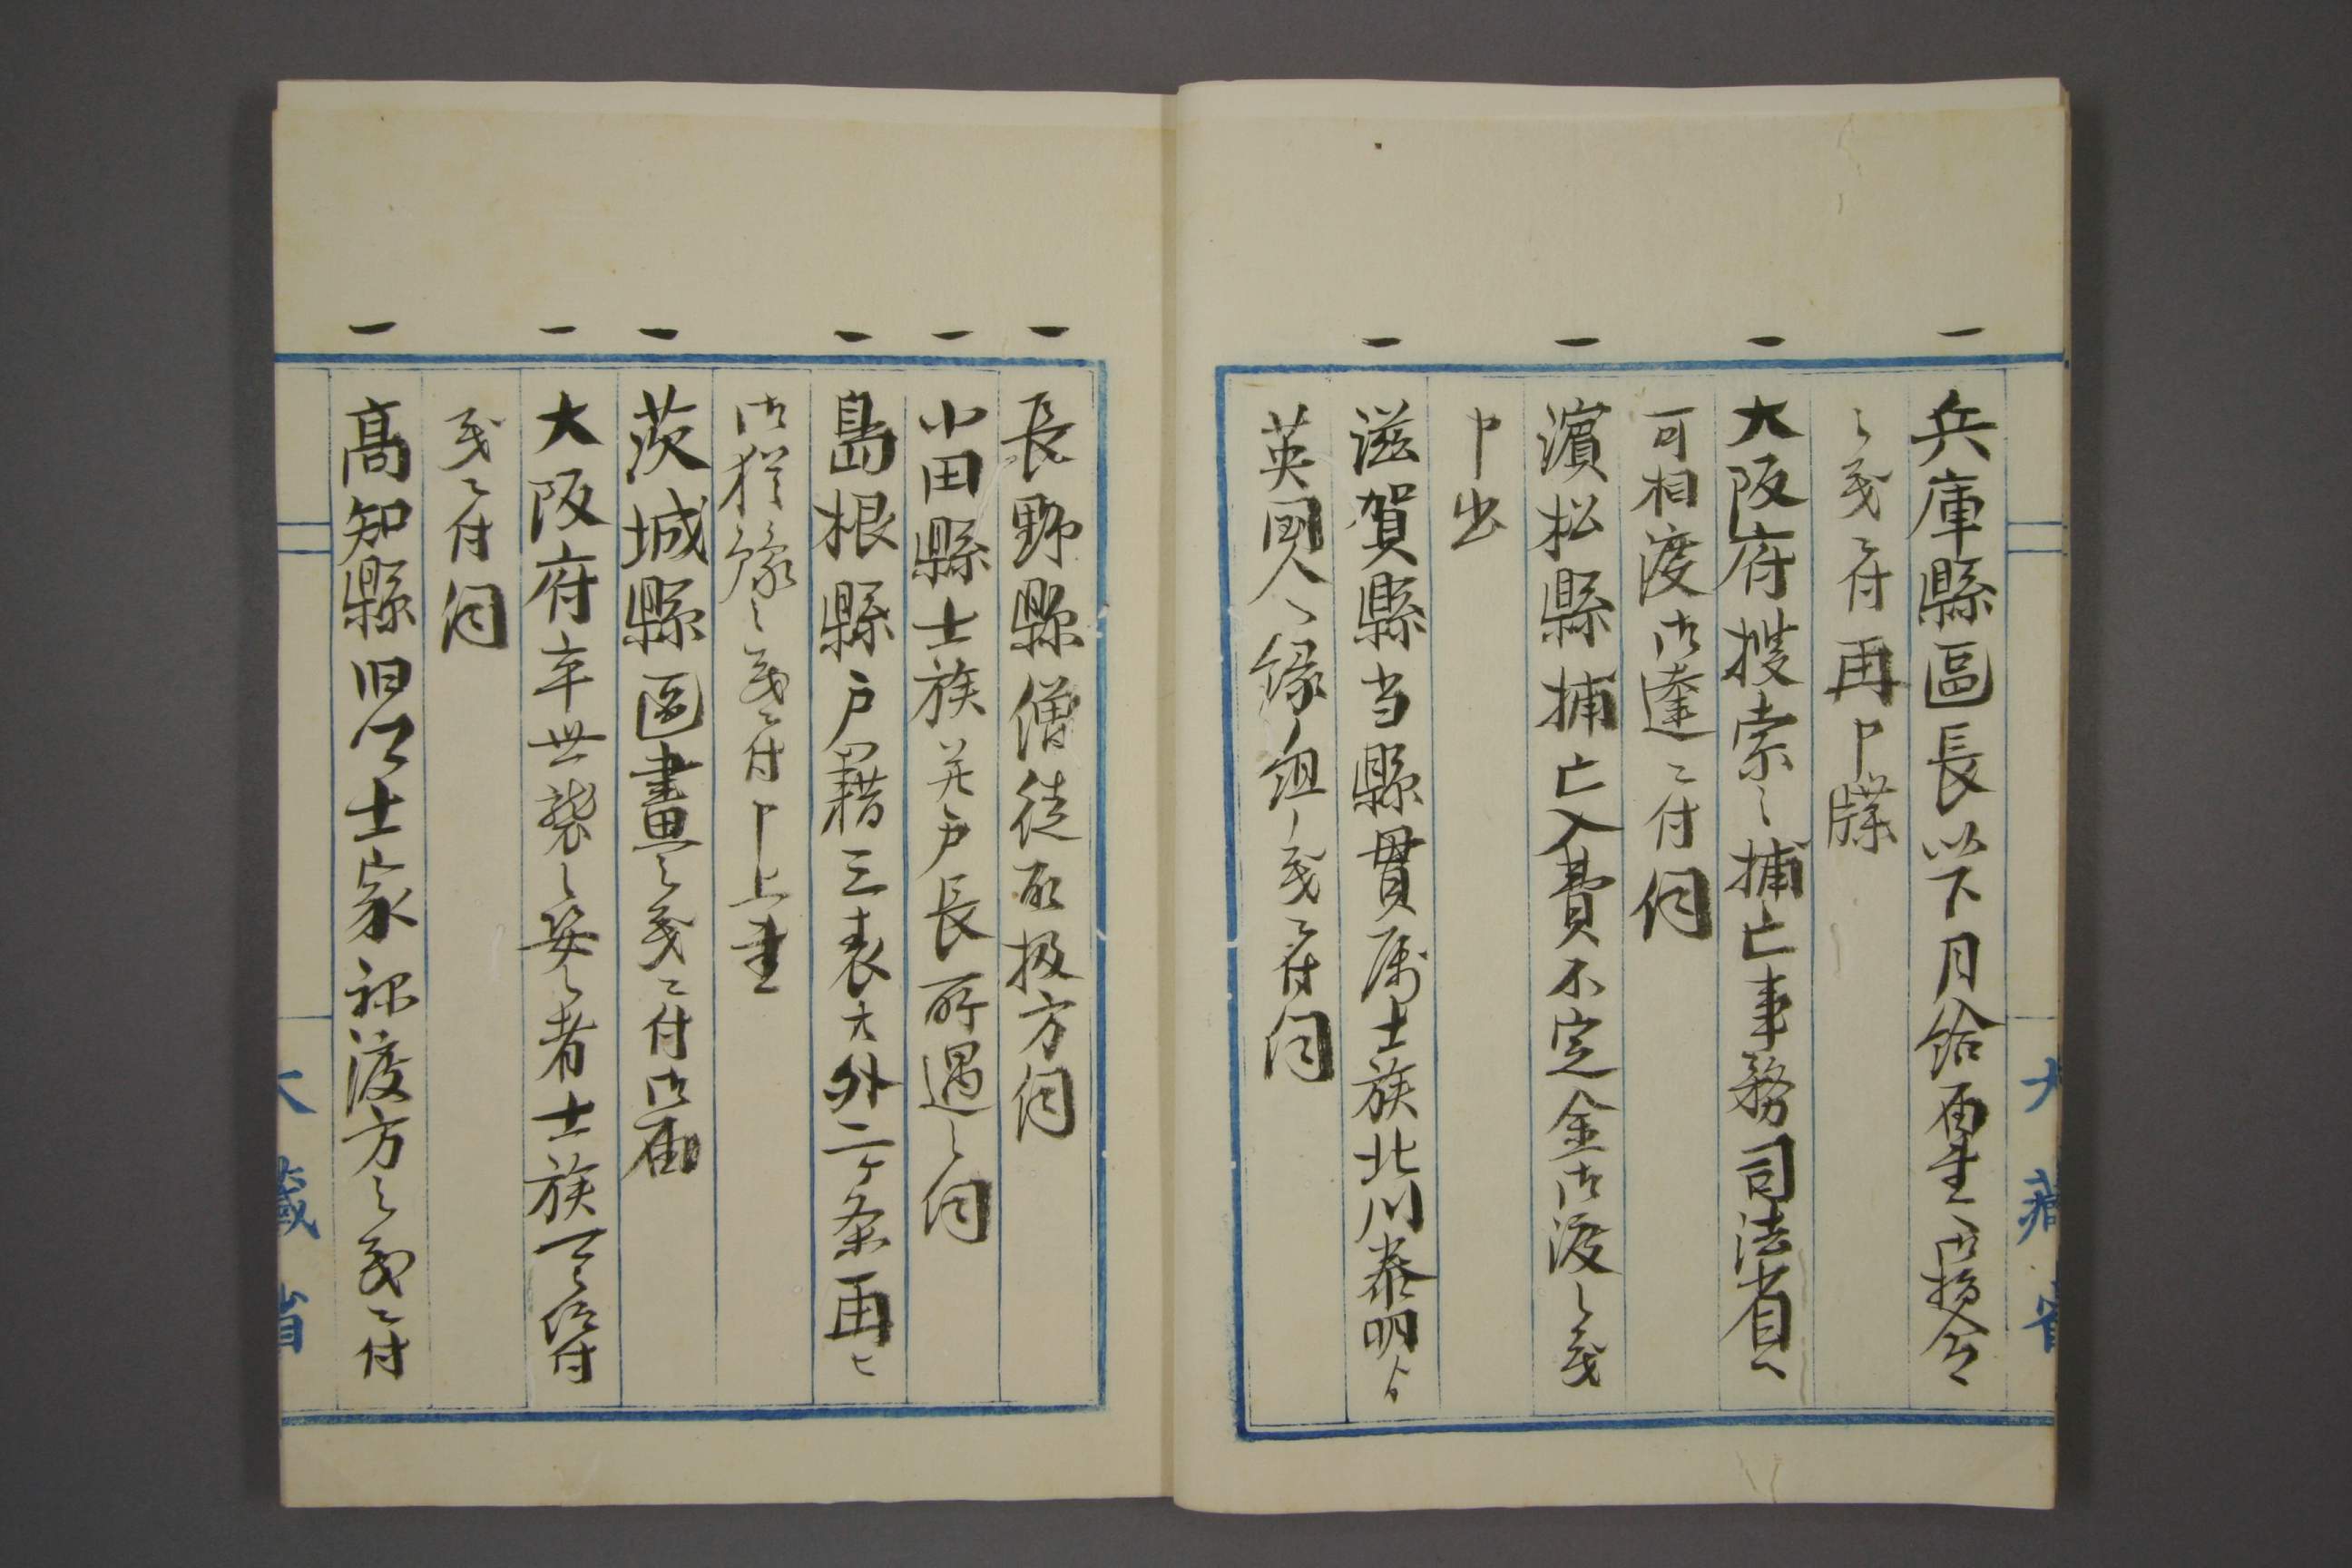 一 兵庫縣區長以下月給両全御指令
之義ニ付再申牒
一 大阪府捜索之捕亡事務司法省ヘ
可相渡御達ニ付伺
一 濱松縣捕亡入費不定金御渡之義
申出
一 滋賀縣当縣貫属士族北川泰明ヨリ
英国人ヘ縁組ノ義ニ付伺
一 長野縣僧徒取扱方伺
一 小田縣士族并戸長所遇之伺
一 島根縣戸籍三表大外二ケ条再ヒ
御猶豫之義ニ付申上書
一 茨城縣區畫之義ニ付御届
一 大阪府卒世襲之姿之者士族可被仰付
義ニ付伺
一 髙知縣旧公士家禄渡方之義ニ付
大藏省
大藏省